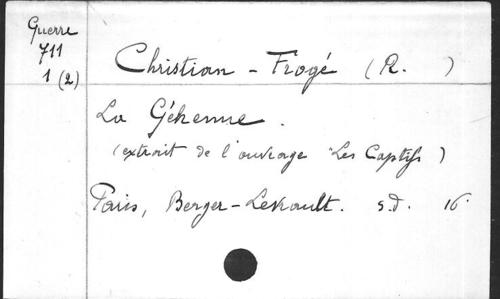 Guerre
711
1 (2)
Christian - Frogé (R. )
La Géhenne .
(extrait de l'ouvrage "Les Captifs )
Paris, Berger-Levrault. s.d. 16°